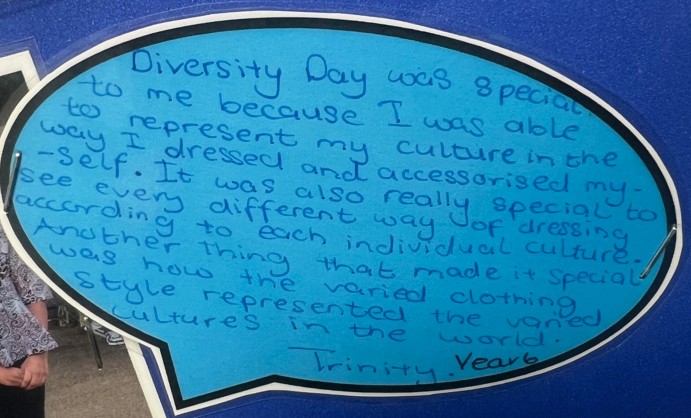 Diversity Day was special
to me because I was able
to represent my culture in the
way I dressed and accessorised my-
-self. It was also really special to
see every different way of dressing
according to each individual culture.
Another thing that made it special
was how the varied clothing
style represented the varied
cultures in the world.
Trinity. Year 6